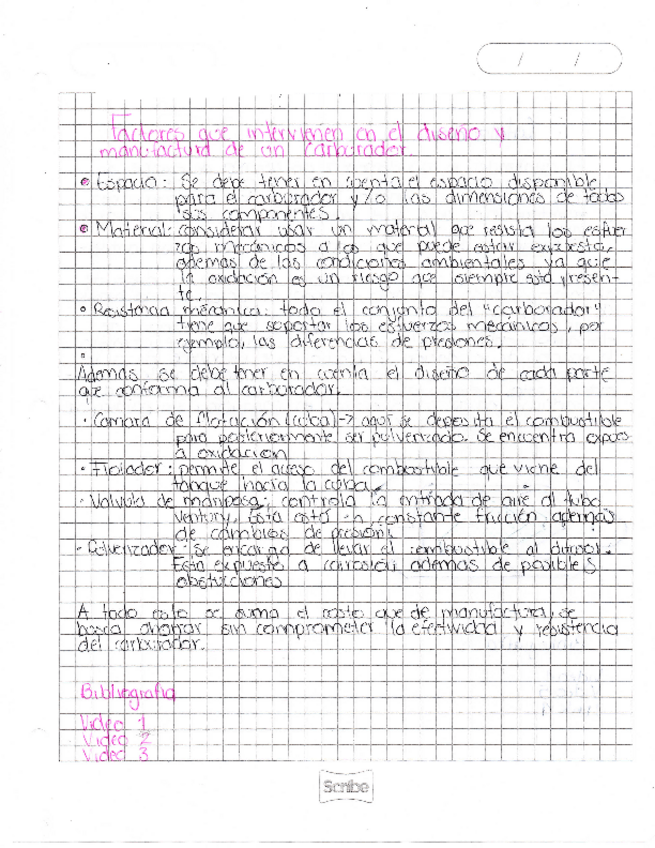 Factores que intervienen en el diseño y
manufactura de un carburador.
• Espacio: Se debe tener en cuenta el espacio disponible
para el carborador y/o las dimensiones de todos
sus componentes.
• Material: considerar usar un material que resista los esfuer
zos mecánicos a los que puede estar expuesto,
ademas de las condiciones ambientales ya que
la oxidación es un riesgo que siempre está presen-
te.
• Resistencia mecánica: todo el conjunto del "carborador"
tiene que soportar los esfuerzos mecánicos, por
ejemplo, las diferencias de presiones.
Además se debe tener en cuenta el diseño de cada parte
que conforma al carborador.
· Camara de flotación (cuba) → aqui se deposita el combustible
para posteriormente ser pulverizado. Se encuentra expues
a oxidacion
· Flotador: permite el acceso del combustible que viene del
tanque hacia la cuba.
· Valvula de mariposa: controla la entrada de aire al tubo
Ventury. Esta está en constante fricción ademas
de cambios de presión.
· Pulverizador: se encarga de llevar el combustible al
Esta expuesto a corrosión ademas de posibles
obstucciones
A todo esto se suma el costo que de manufactura, se
busca ahorrar sin comprometer la efectividad y resistencia
del carburador.
Bibliografia
Video 1
Video 2
Video 3
Scribe